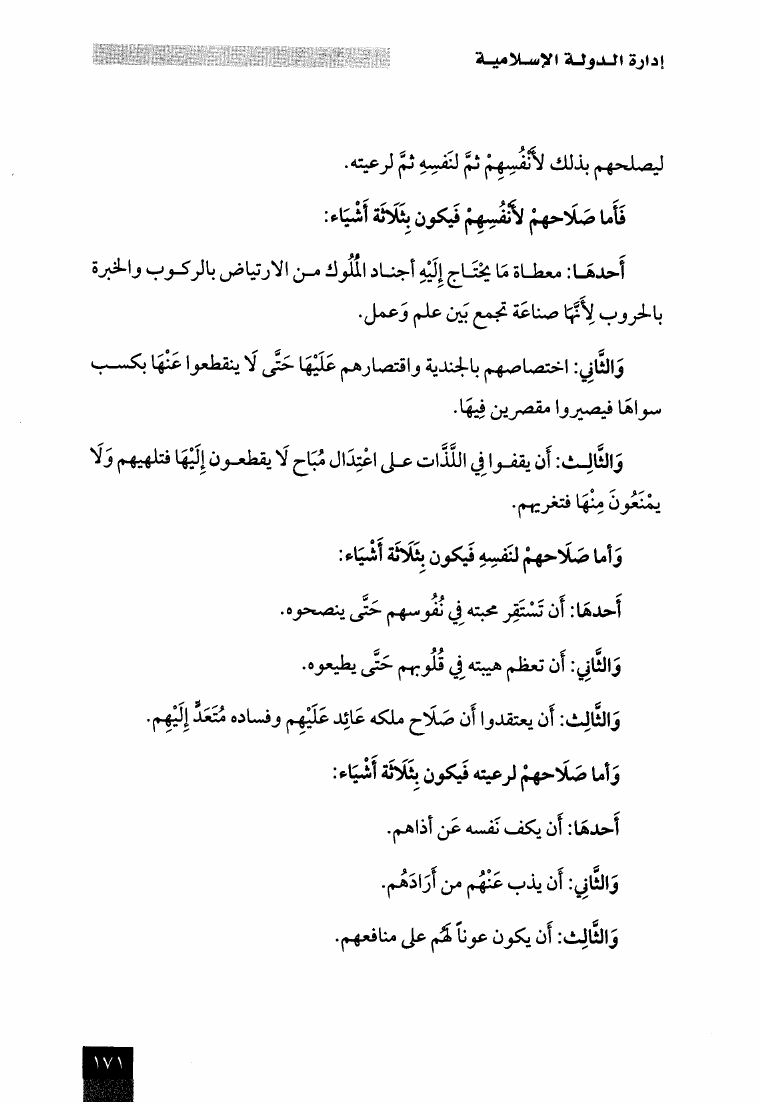 إدارة الدولة الإسلامية
ليصلحهم بذلك لأَنْفُسِهِمْ ثمَّ لنَفسِهِ ثمَّ لرعيته.
فَأما صَلَاحهمْ لأَنْفُسِهِمْ فَيكون بِثَلَاثَة أَشْيَاء:
أَحدهَا: معطاة مَا يَحْتَاج إِلَيْهِ أجناد المُلُوك من الارتياض بالركوب والخبرة
بالحروب لِأَنَّهَا صناعَة تجمع بَين علم وَعمل.
وَالثَّانِي: اختصاصهم بالجندية واقتصارهم عَلَيْهَا حَتَّى لَا ينقطعوا عَنْهَا بكسب
سواهَا فيصيروا مقصرين فِيهَا.
وَالثَّالِث: أَن يقفوا فِي اللَّذَّات على اعْتِدَال مُبَاح لَا يقطعون إِلَيْهَا فتلهيهم وَلَا
يمْنَعُونَ مِنْهَا فتغريهم.
وَأما صَلَاحهمْ لنَفسِهِ فَيكون بِثَلَاثَة أَشْيَاء:
أَحدهَا: أَن تَسْتَقِر محبته فِي نُفُوسهم حَتَّى ينصحوه.
وَالثَّانِي: أَن تعظم هيبته فِي قُلُوبهم حَتَّى يطيعوه.
وَالثَّالِث: أَن يعتقدوا أَن صَلَاح ملكه عَائِد عَلَيْهِم وفساده مُتَعَدٍّ إِلَيْهِم.
وَأما صَلَاحهمْ لرعيته فَيكون بِثَلَاثَة أَشْيَاء:
أَحدهَا: أَن يكف نَفسه عَن أذاهم.
وَالثَّانِي: أَن يذب عَنْهُم من أَرَادَهُم.
وَالثَّالِث: أَن يكون عوناً لَهُم على منافعهم.
١٧١